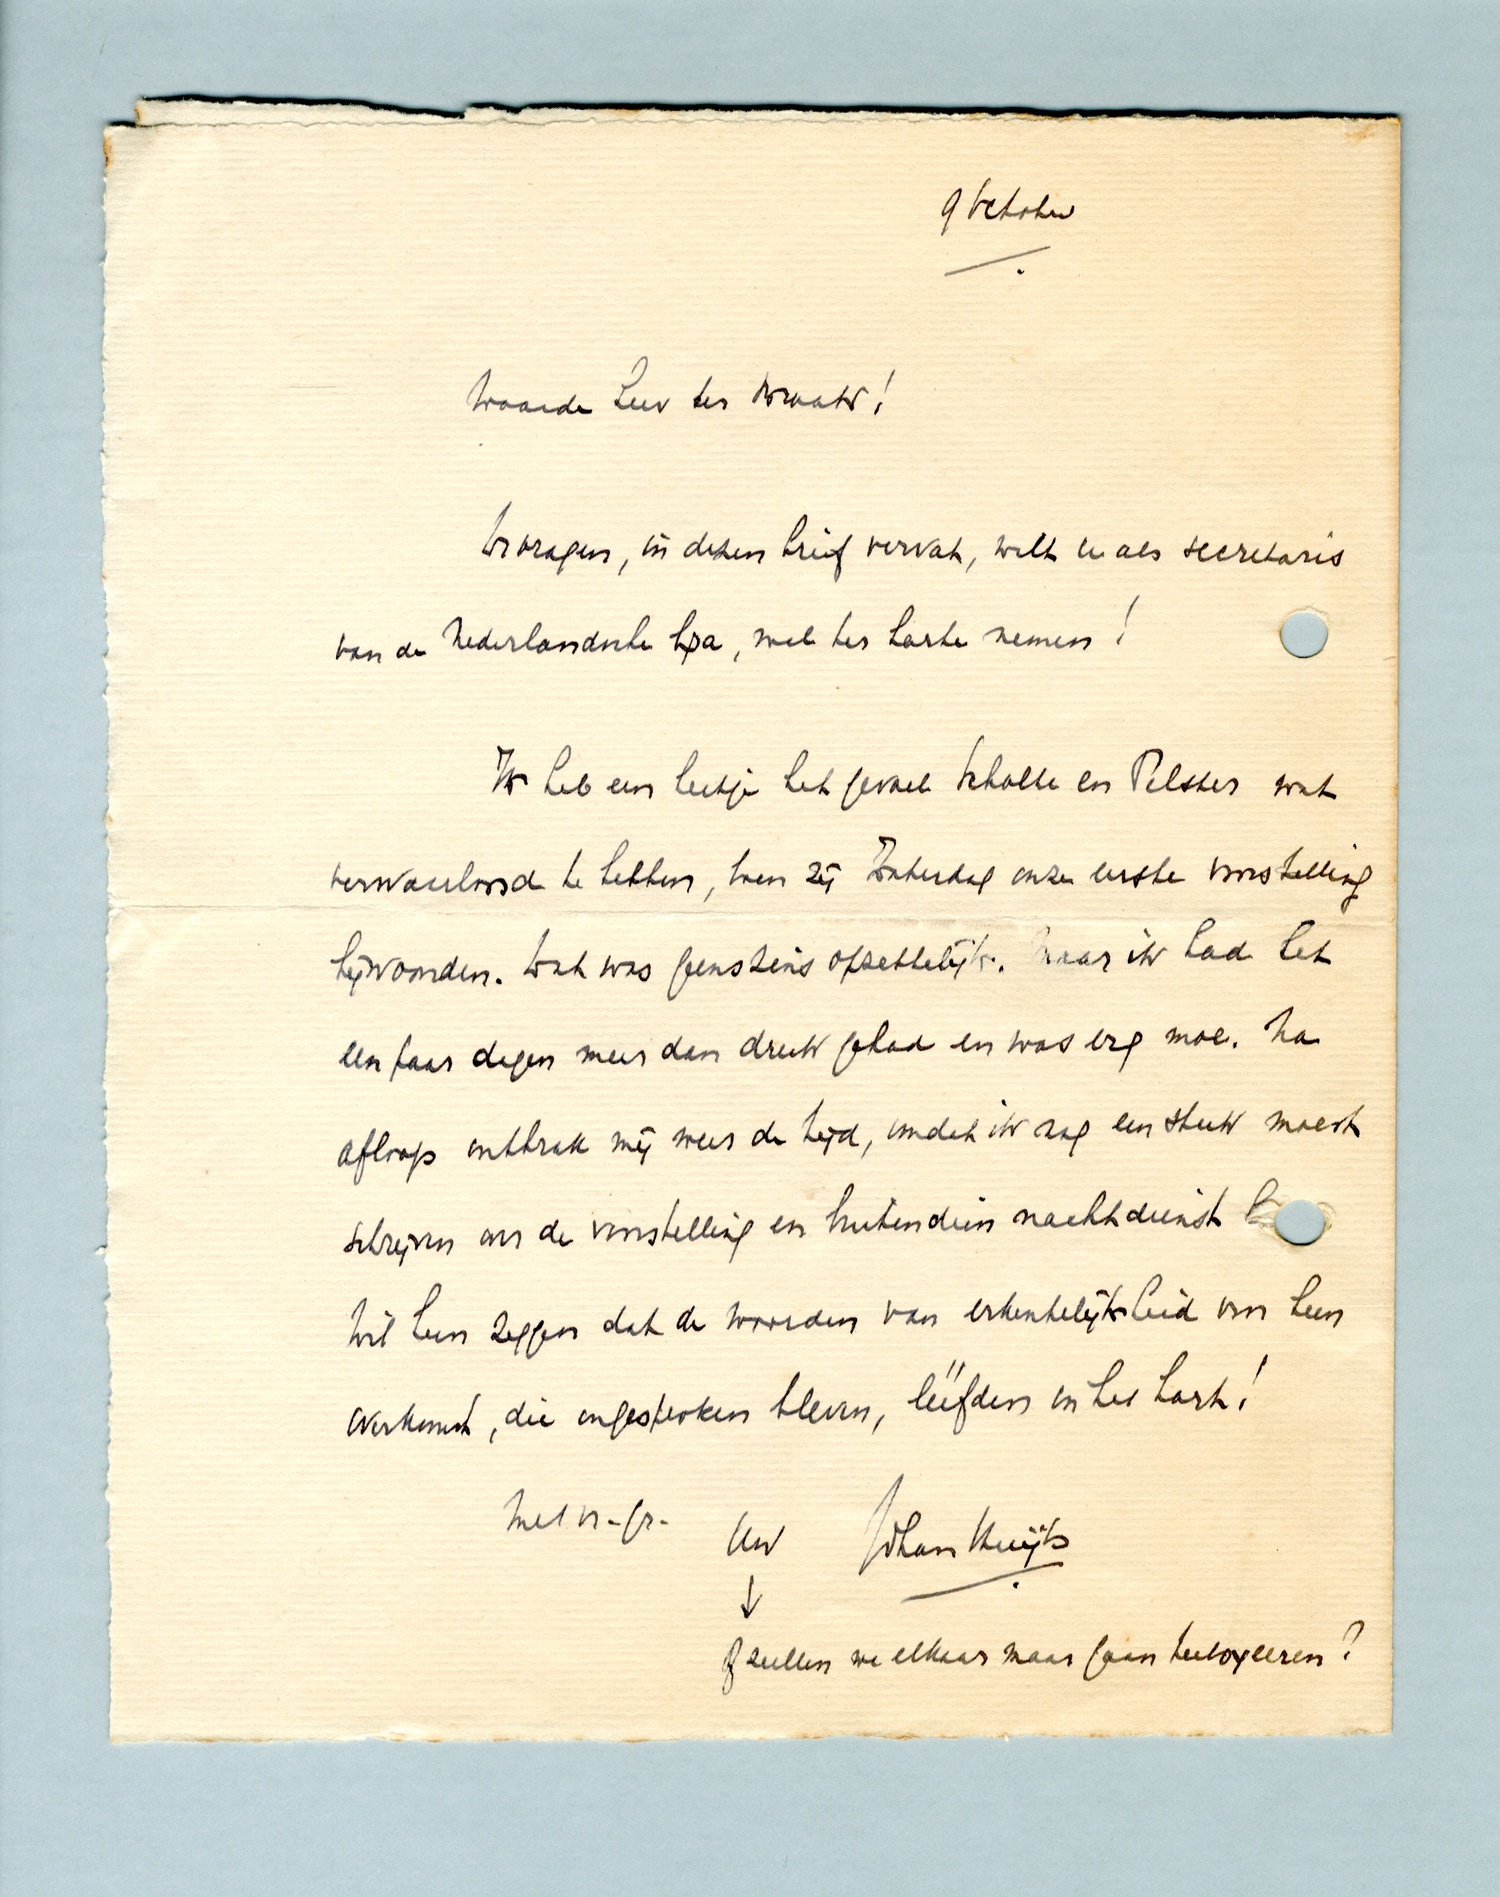 9 October
Waarde Heer ter Braak!
De vragen, in dezen brief vervat, wilt U als secretaris
van de Nederlandsche Liga, wel ter harte nemen!
Ik heb een beetje het gevoel Scholte en Pelster wat
verwaarloosd te hebben, toen zij Zaterdag onze eerste voorstelling
bijwoonden. Dat was geenszins opzettelijk. Maar ik had het
een paar dagen meer dan druk gehad en was erg moe. Na
afloop ontbrak mij weer de tijd, omdat ik nog een stuk moest
schrijven over de voorstelling en buitendien nachtdienst
Wil hen zeggen dat de woorden van erkentelijkheid voor hun
overkomst, die ongesproken bleven, leefden in het hart!
Met vr. gr.
Uw Johan Huijts
↓
Of zullen we elkaar maar gaan tutoyeeren?